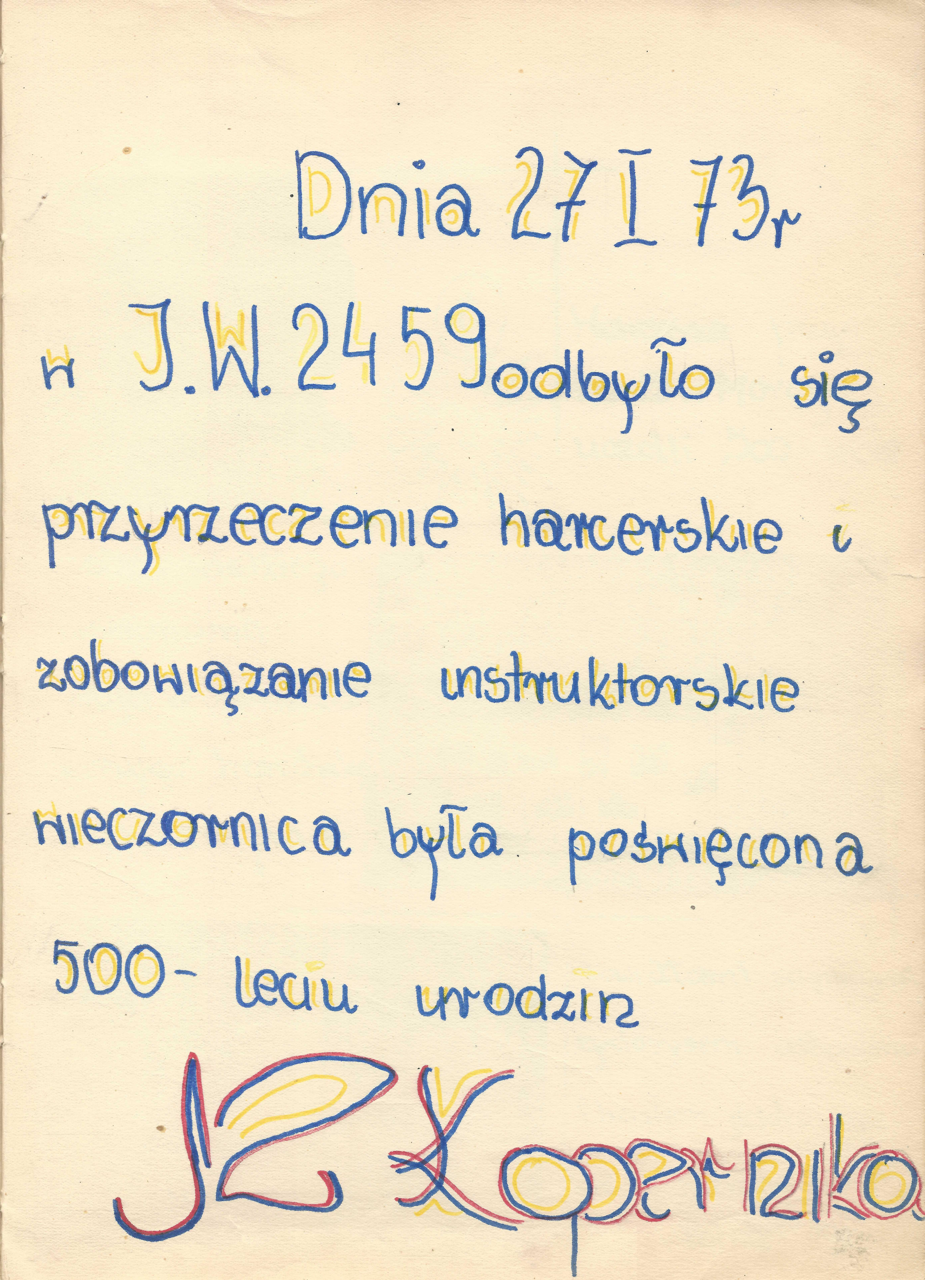 Dnia 27 I 73r
w J.W. 2459 odbyło się
przyrzeczenie harcerskie i
zobowiązanie instruktorskie
wieczornica była poświęcona
500-leciu urodzin
M Kopernika